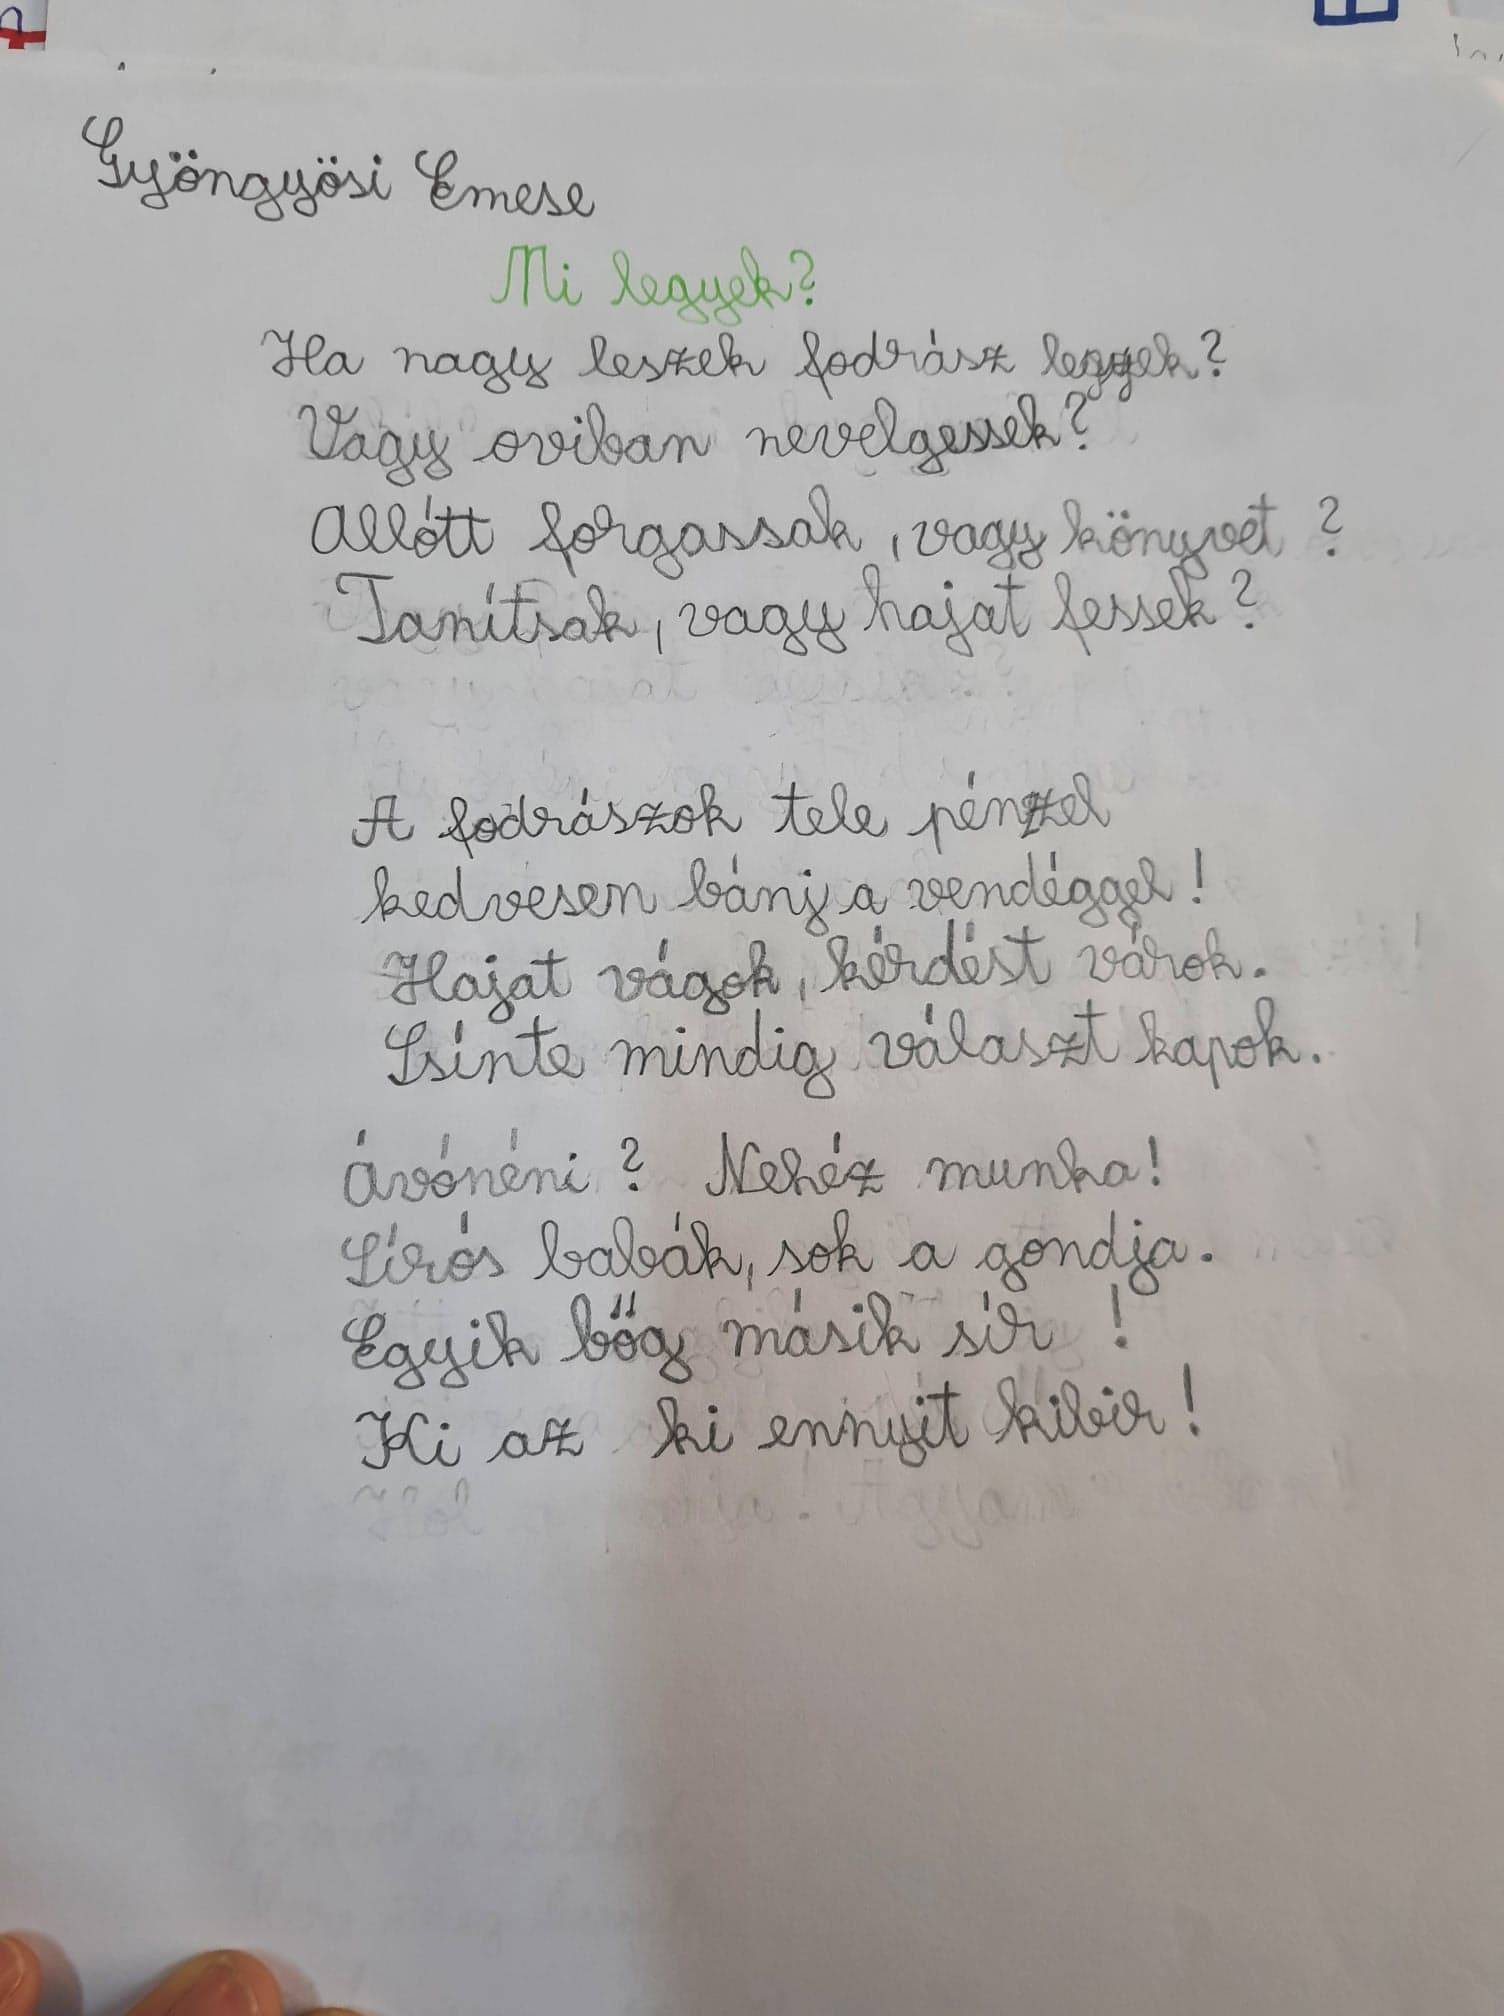 Gyöngyösi Emese
Mi legyek?
Ha nagy leszek fodrász legyek?
Vagy oviban nevelgessek?
Allótt forgassak, vagy könyvet?
Tanítsak, vagy hajat fessek?
A fodrászok tele pénzel
kedvesem bánj a vendéggel!
Hajat vágok, kérdést várok.
Szinte mindig választ kapok.
Óvónéni? Nehéz munka!
Síros babák, sok a gondja.
Egyik bőg másik sír!
Ki az ki ennyit kibir!